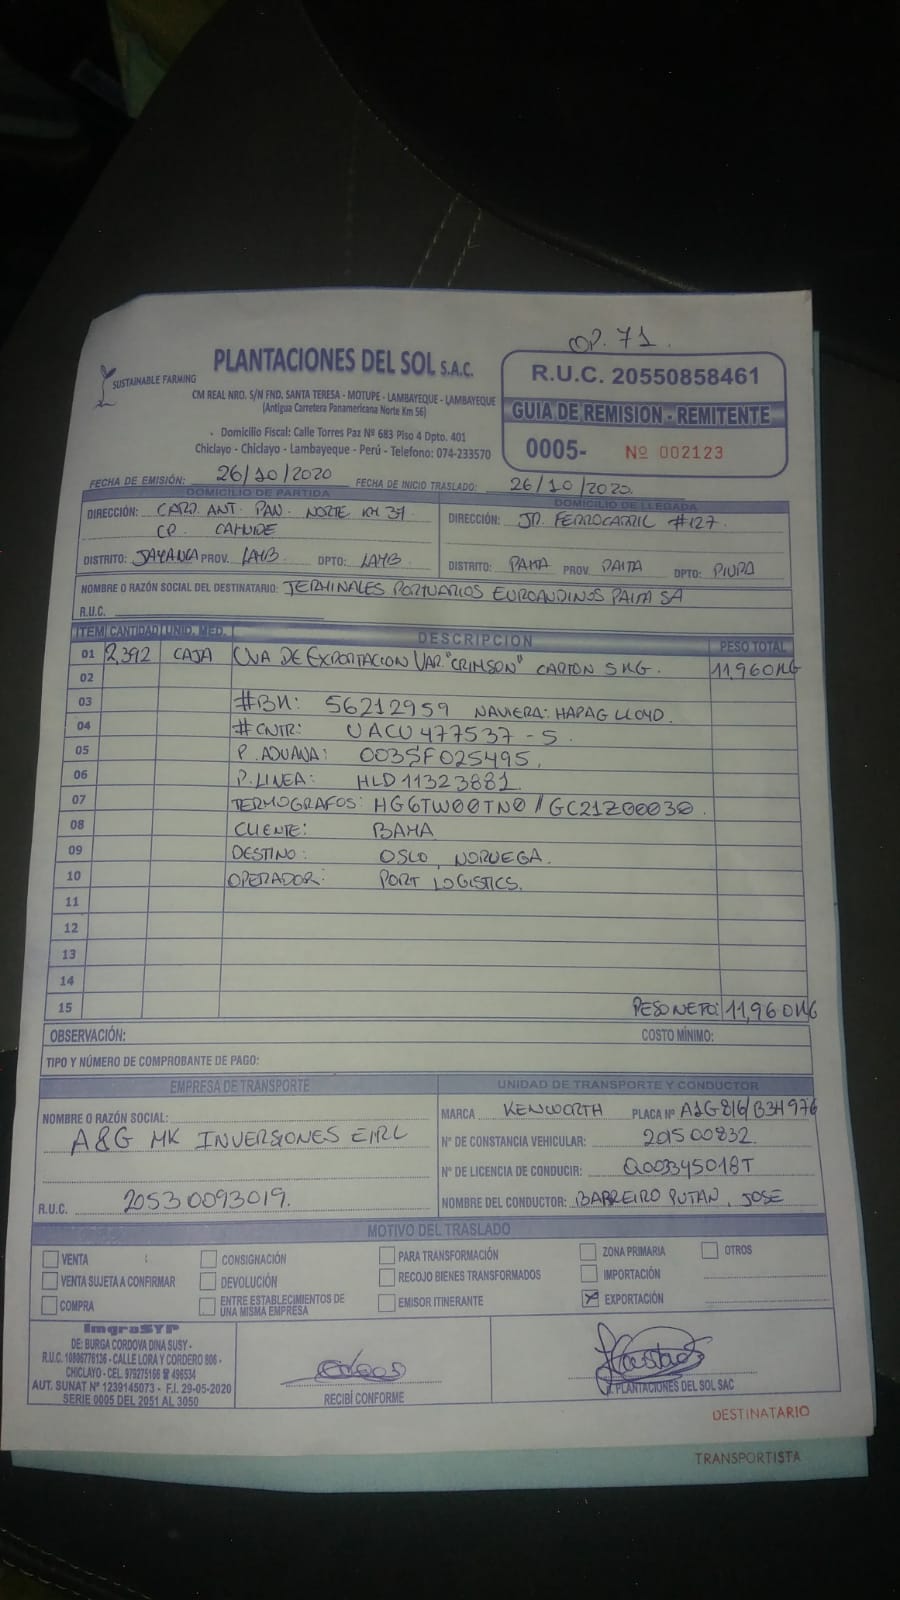 OP. 71.
SUSTAINABLE FARMING
PLANTACIONES DEL SOL S.A.C.
CM REAL NRO. S/N FND. SANTA TERESA - MOTUPE - LAMBAYEQUE - LAMBAYEQUE
(Antigua Carretera Panamericana Norte Km 56)
Domicilio Fiscal: Calle Torres Paz Nº 683 Piso 4 Dpto. 401
Chiclayo - Chiclayo - Lambayeque - Perú - Telefono: 074-233570
R.U.C. 20550858461
GUIA DE REMISION - REMITENTE
0005- Nº 002123
FECHA DE EMISIÓN: 26/10/2020 FECHA DE INICIO TRASLADO: 26/10/2020.
DOMICILIO DE PARTIDA
DIRECCIÓN: CARR. ANT. PAN. NORTE KM 37
CP. CAHUIDE
DISTRITO: JAYANCA PROV. LAMB. DPTO: LAMB
DOMICILIO DE LLEGADA
DIRECCIÓN: JR. FERROCARRIL #127.
DISTRITO: PAITA PROV PAITA DPTO: PIURA
NOMBRE O RAZÓN SOCIAL DEL DESTINATARIO: TERMINALES PORTUARIOS EUROANDINOS PAITA SA
R.U.C.
ITEM CANTIDAD UNID. MED. DESCRIPCION PESO TOTAL
01 2,392 CAJA UVA DE EXPORTACION VAR. "CRIMSON" CARTON 5KG. 11,960KG
02
03 #BK: 56212959 NAVIERA: HAPAG LLOYD.
04 #CNTR: UACU 477537-5.
05 P. ADUANA: 003SF025495.
06 P. LINEA: HLD11323881.
07 TERMOGRAFOS: HG6TW00TN0 / GC21Z00030.
08 CLIENTE: BAMA
09 DESTINO: OSLO, NORUEGA.
10 OPERADOR: PORT LOGISTICS.
11
12
13
14
15 PESO NETO: 11,960KG
OBSERVACIÓN: COSTO MÍNIMO:
TIPO Y NÚMERO DE COMPROBANTE DE PAGO:
EMPRESA DE TRANSPORTE
NOMBRE O RAZÓN SOCIAL:
A&G MK INVERSIONES EIRL
R.U.C. 20530093019.
UNIDAD DE TRANSPORTE Y CONDUCTOR
MARCA KENWORTH PLACA Nº A1G816/B3H976
Nº DE CONSTANCIA VEHICULAR: 201500832.
Nº DE LICENCIA DE CONDUCIR: Q003345018T
NOMBRE DEL CONDUCTOR: BARREIRO PUTAN, JOSE
MOTIVO DEL TRASLADO
VENTA CONSIGNACIÓN PARA TRANSFORMACIÓN ZONA PRIMARIA OTROS
VENTA SUJETA A CONFIRMAR DEVOLUCIÓN RECOJO BIENES TRANSFORMADOS IMPORTACIÓN
COMPRA ENTRE ESTABLECIMIENTOS DE UNA MISMA EMPRESA EMISOR ITINERANTE X EXPORTACIÓN
ImgraSYP
DE: BURGA CORDOVA DINA SUSY -
R.U.C. 10806776136 - CALLE LORA Y CORDERO 806 -
CHICLAYO - CEL. 979275166 ☎ 496534
AUT. SUNAT Nº 1239145073 - F.I. 29-05-2020
SERIE 0005 DEL 2051 AL 3050
RECIBÍ CONFORME
P. PLANTACIONES DEL SOL SAC
DESTINATARIO
TRANSPORTISTA